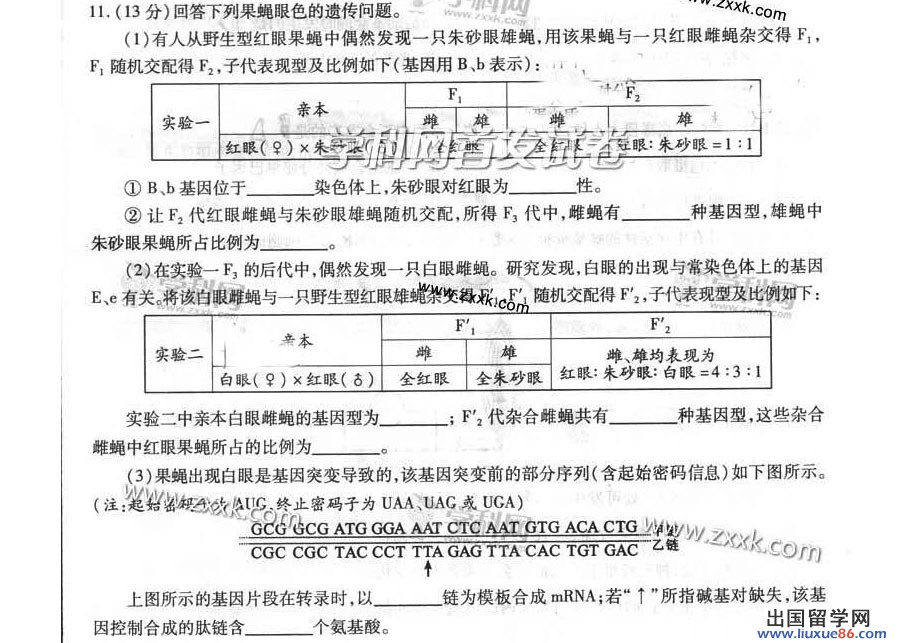 11.(13分)回答下列果蝇眼色的遗传问题。
(1)有人从野生型红眼果蝇中偶然发现一只朱砂眼雄蝇,用该果蝇与一只红眼雌蝇杂交得F1,
F1随机交配得F2,子代表现型及比例如下(基因用B、b表示):
实验一 亲本 F1 F2
雌 雄 雌 雄
红眼(♀)×朱砂眼(♂) 全红眼 全红眼 红眼:朱砂眼=1:1
①B、b基因位于______染色体上,朱砂眼对红眼为______性。
②让F2代红眼雌蝇与朱砂眼雄蝇随机交配,所得F3代中,雌蝇有______种基因型,雄蝇中
朱砂眼果蝇所占比例为______。
(2)在实验一F3的后代中,偶然发现一只白眼雌蝇。研究发现,白眼的出现与常染色体上的基因
E、e有关。将该白眼雌蝇与一只野生型红眼雄蝇杂交得F′1,F′1随机交配得F′2,子代表现型及比例如下:
实验二 亲本 F′1 F′2
雌 雄 雌、雄均表现为
白眼(♀)×红眼(♂) 全红眼 全朱砂眼 红眼:朱砂眼:白眼=4:3:1
实验二中亲本白眼雌蝇的基因型为______;F′2代杂合雌蝇共有______种基因型,这些杂合
雌蝇中红眼果蝇所占的比例为______。
(3)果蝇出现白眼是基因突变导致的,该基因突变前的部分序列(含起始密码信息)如下图所示。
(注:起始密码子为AUG,终止密码子为UAA、UAG或UGA)
GCG GCG ATG GGA AAT CTC AAT GTG ACA CTG 甲链
CGC CGC TAC CCT TTA GAG TTA CAC TGT GAC 乙链
↑
上图所示的基因片段在转录时,以______链为模板合成mRNA;若“↑”所指碱基对缺失,该基
因控制合成的肽链含______个氨基酸。
学科网首发试卷
www.zxxk.com
学科网
www.zxxk.com
出国留学网
www.liuxue86.com